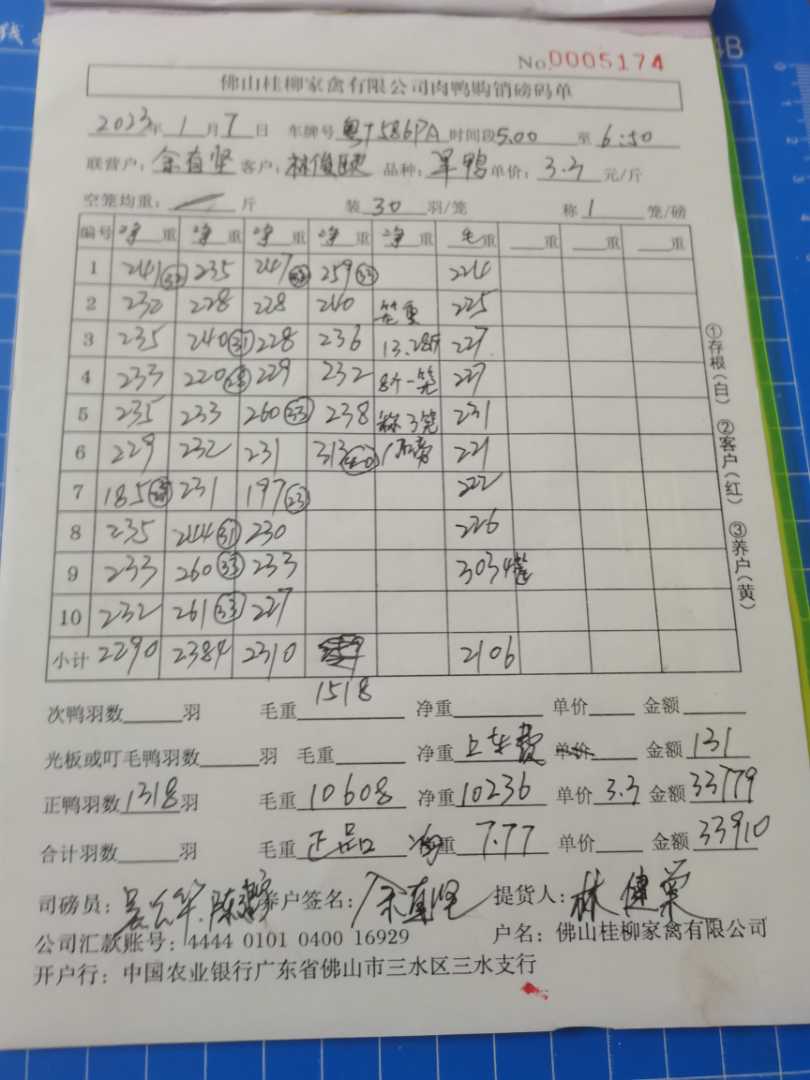 No.0005174
佛山桂柳家禽有限公司肉鸭购销磅码单
2023年 1月 7日 车牌号 粤T586PA 时间段 5.00 至 6:50
联营户: 余有坚 客户: 林俊 品种: 旱鸭 单价: 3.3 元/斤
空笼均重: 斤 装 30 羽/笼 称 1 笼/磅
编号 净重 净重 净重 净重 净重 毛重 重 重 重
1 241 235 247 259 33 224
2 232 228 228 240 笼重 225
3 235 240 31 228 236 13.28斤 227
4 233 220 229 232 8个一笼 227
5 235 233 260 33 238 称3笼 231
6 229 232 231 313 40 221
7 185 231 197 23 222
8 235 244 31 230 226
9 233 260 33 233 303
10 232 261 33 227
小计 2290 2384 2310 2106
1518
次鸭羽数 羽 毛重 净重 单价 金额
光板或叮毛鸭羽数 羽 毛重 净重 上车费 单价 金额 131
正鸭羽数 1318 羽 毛重 10608 净重 10236 单价 3.3 金额 33779
合计羽数 羽 毛重 正品 净重 7.77 单价 金额 33910
司磅员: 养户签名: 余有坚 提货人: 林健荣
公司汇款账号: 4444 0101 0400 16929 户名: 佛山桂柳家禽有限公司
开户行: 中国农业银行广东省佛山市三水区三水支行
①存根(白) ②客户(红) ③养户(黄)